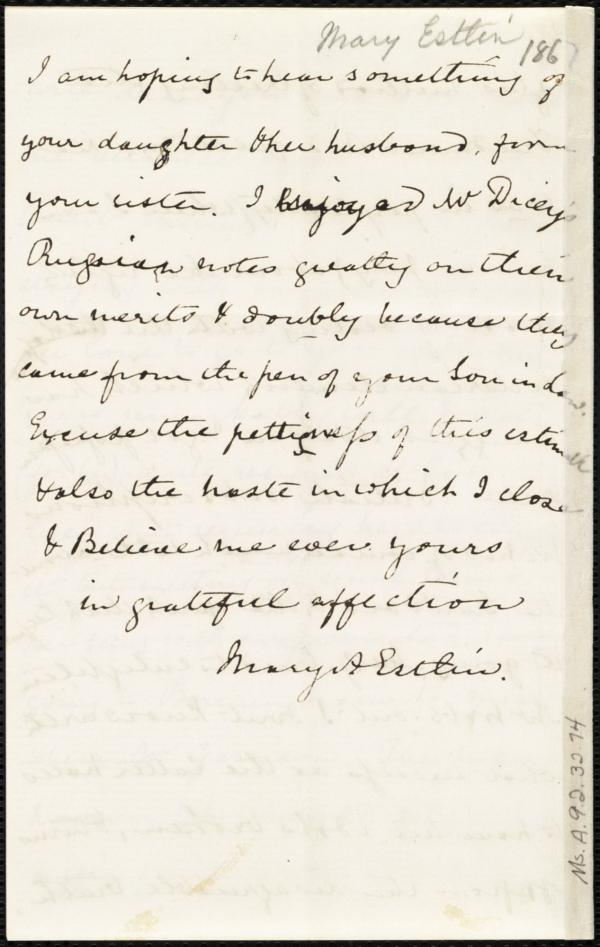 Mary Estlin 1867
I am hoping to hear something of
your daughter & her husband, from
your sister. I enjoyed Mr Dicey's
Russian notes greatly on their
own merits & doubly because they
came from the pen of your Son in Law.
Excuse the pettiness of this
& also the haste in which I close
& Believe me ever yours
in grateful affection
Mary A Estlin.
Ms. A. 9.2. 32 74